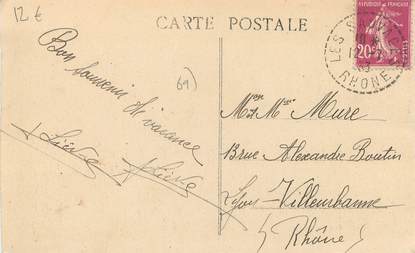 12 €
CARTE POSTALE
REPUBLIQUE FRANCAISE
20c
LES
RHONE
69)
Bon souvenir de vacance
Mr et Mme Mure
Rue Alexandre Boutin
Lyon-Villeurbanne
Rhône